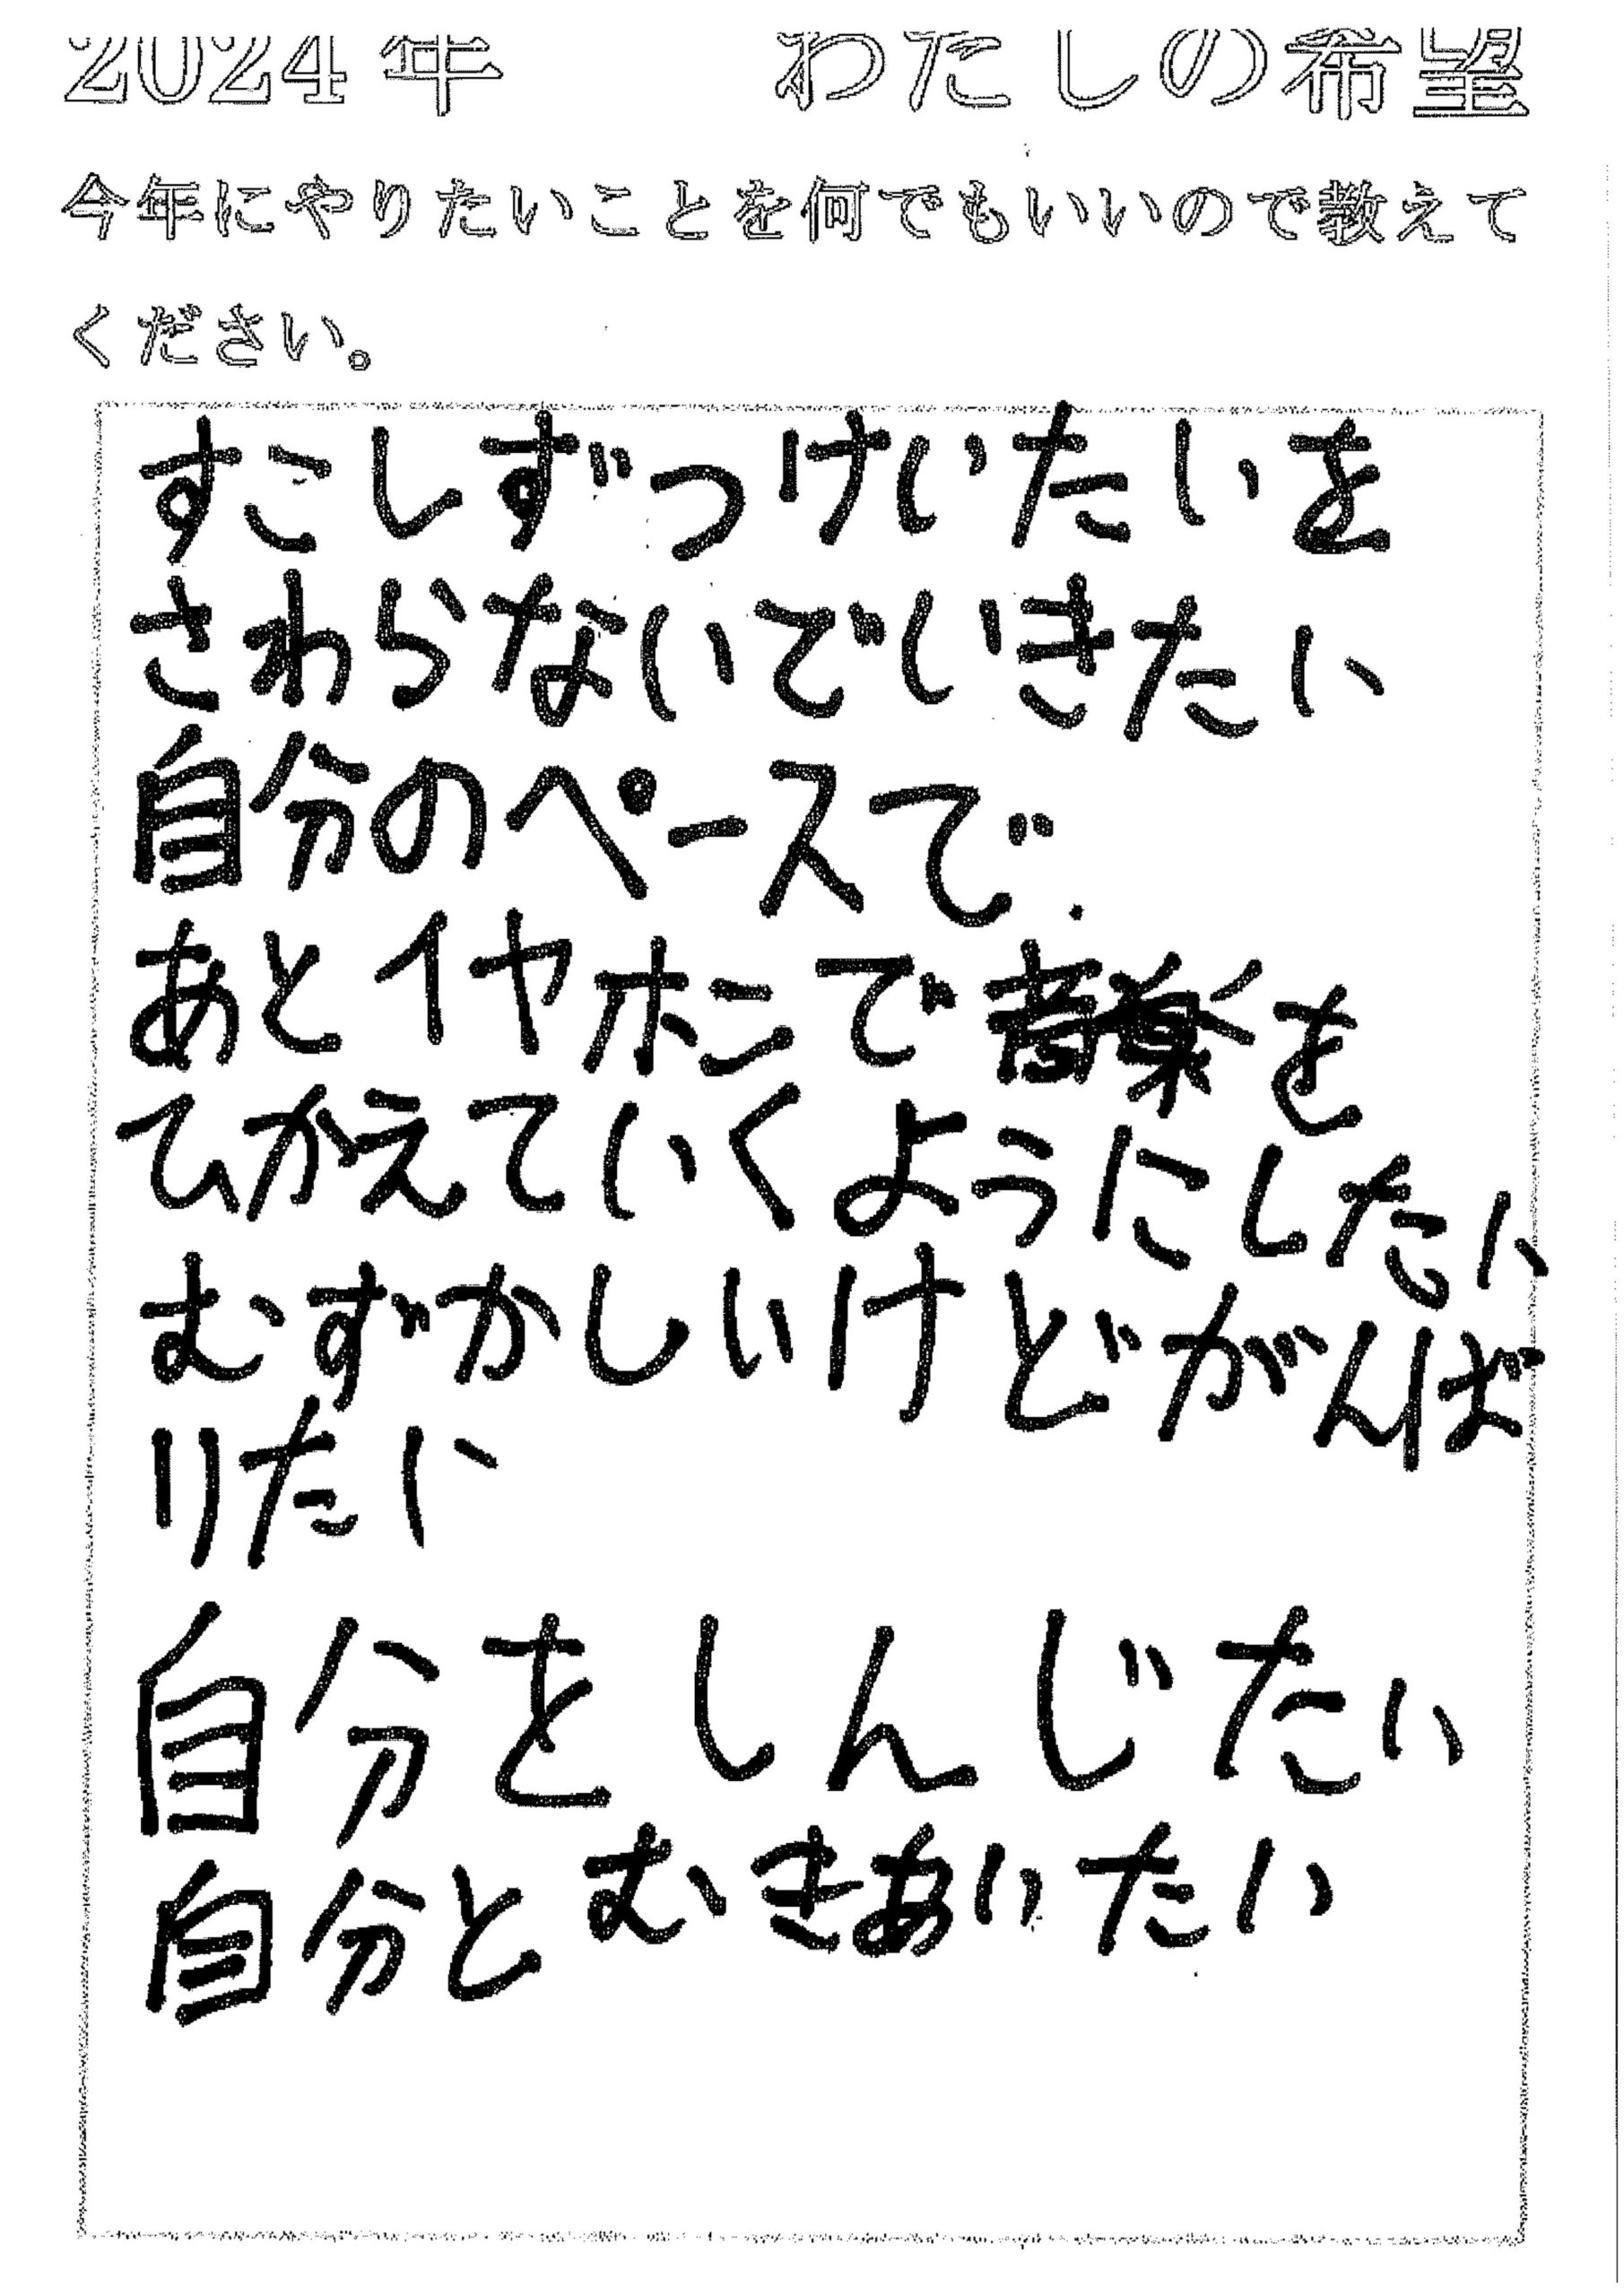 2024年 わたしの希望
今年にやりたいことを何でもいいので教えて
ください。
すこしずつけいたいを
さわらないでいきたい
自分のペースで.
あとイヤホンで音楽を
ひかえていくようにしたい
むずかしいけどがんば
りたい
自分をしんじたい
自分とむきあいたい